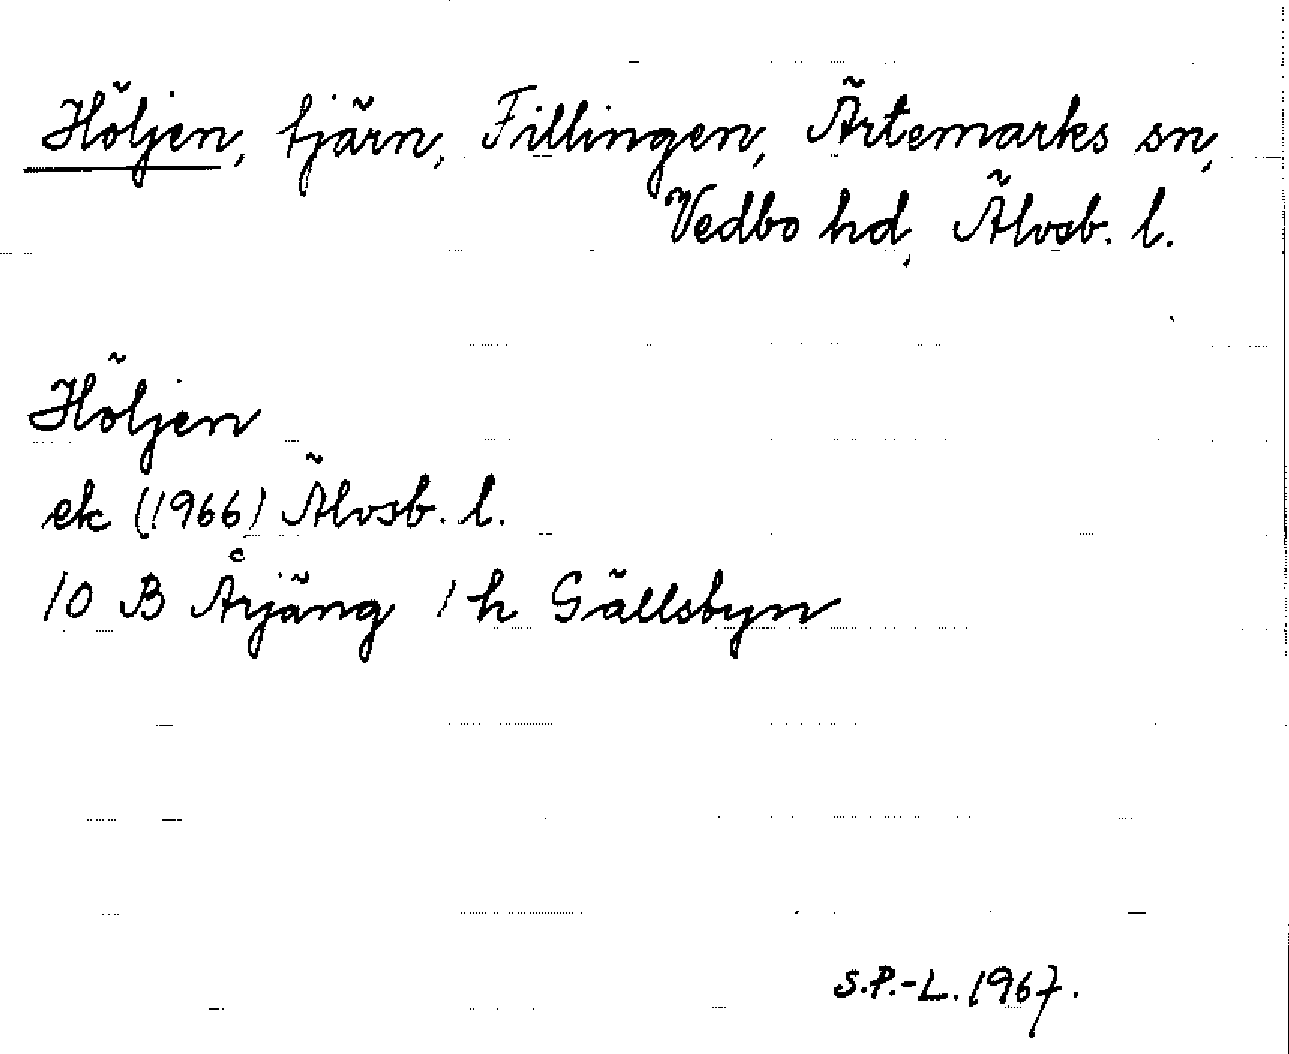 Höljen, tjärn, Fillingen, Ärtemarks sn,
Vedbo hd, Älvsb. l.
Höljen
ek (1966) Älvsb. l.
10 B Årjäng 1 h Gällsbyn
S.P.-L. 1967.